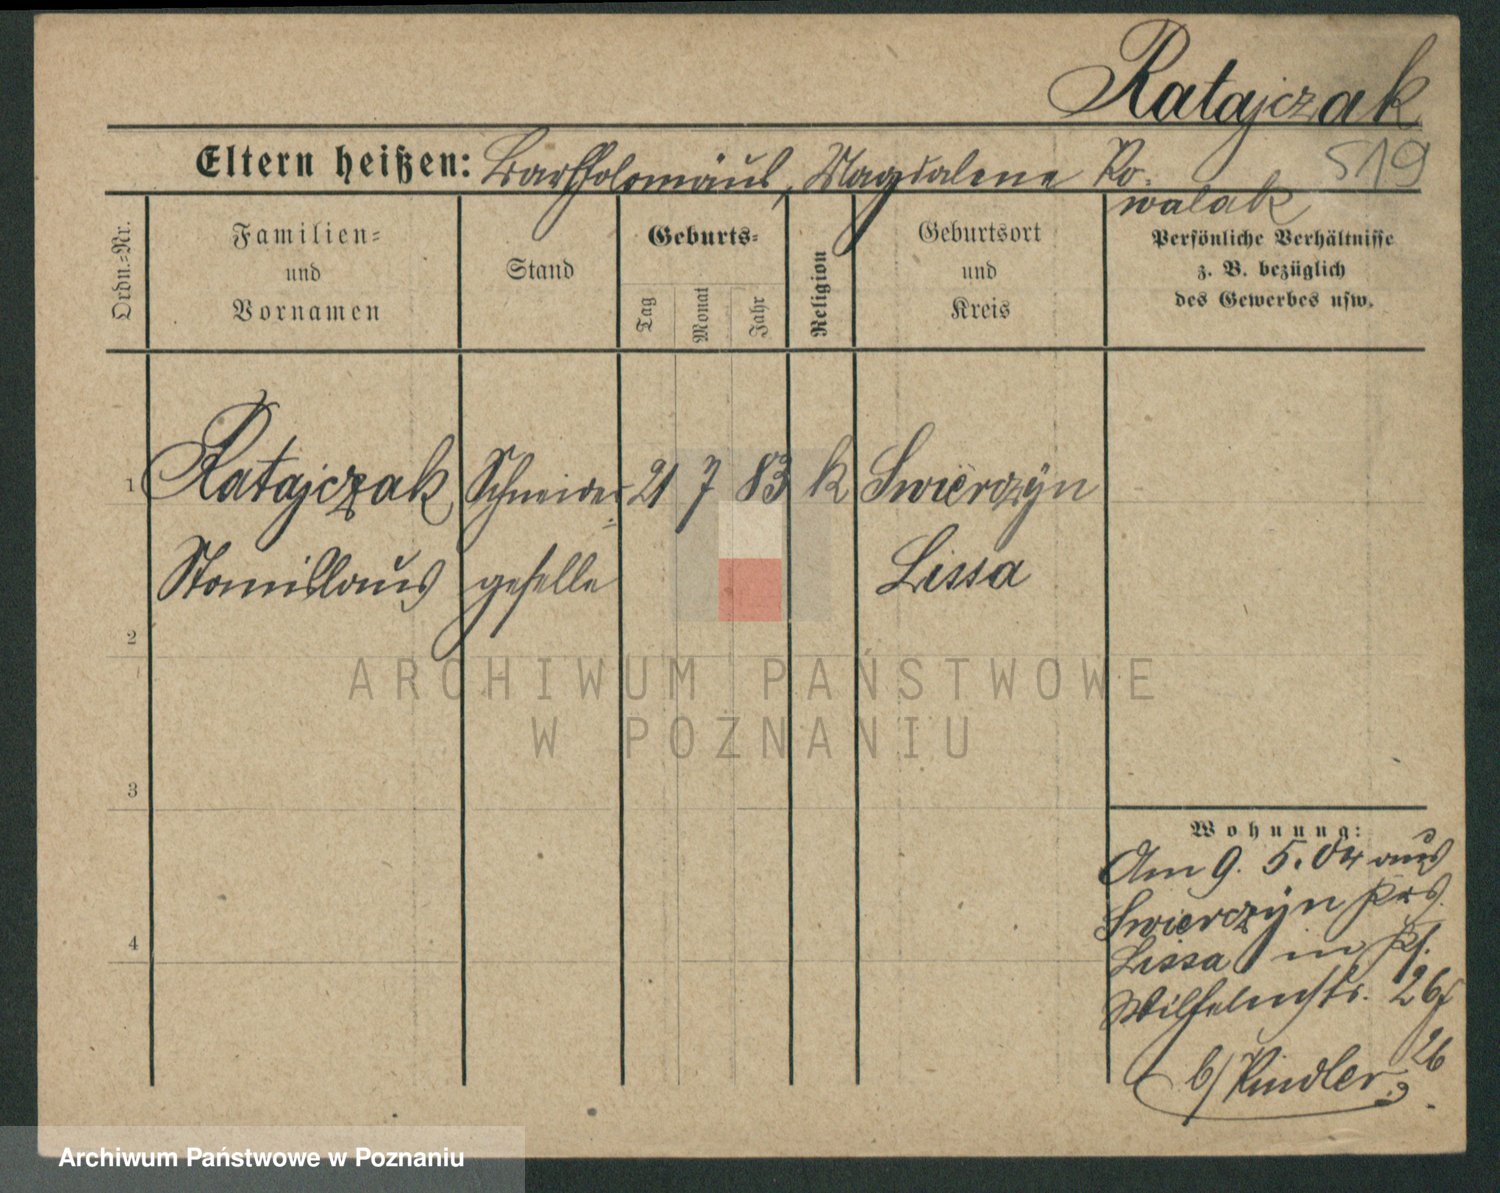 Ratajczak
519
Eltern heißen: Bartholomäus, Magdalene Ko-
walak
Ordn.-Nr.
Familien-
und
Vornamen
Stand
Geburts-
Tag
Monat
Jahr
Religion
Geburtsort
und
Kreis
Persönliche Verhältnisse
z. B. bezüglich
des Gewerbes usw.
1 Ratajczak Schneider- 21 7 83 k Swierczyn
Stanislaus geselle Lissa
2
3
4
Wohnung:
Am 9. 5. 04 aus
Swierczyn Krs.
Lissa in
Wilhelmstr. 26
26
b/ Kindler.
ARCHIWUM PAŃSTWOWE
W POZNANIU
Archiwum Państwowe w Poznaniu